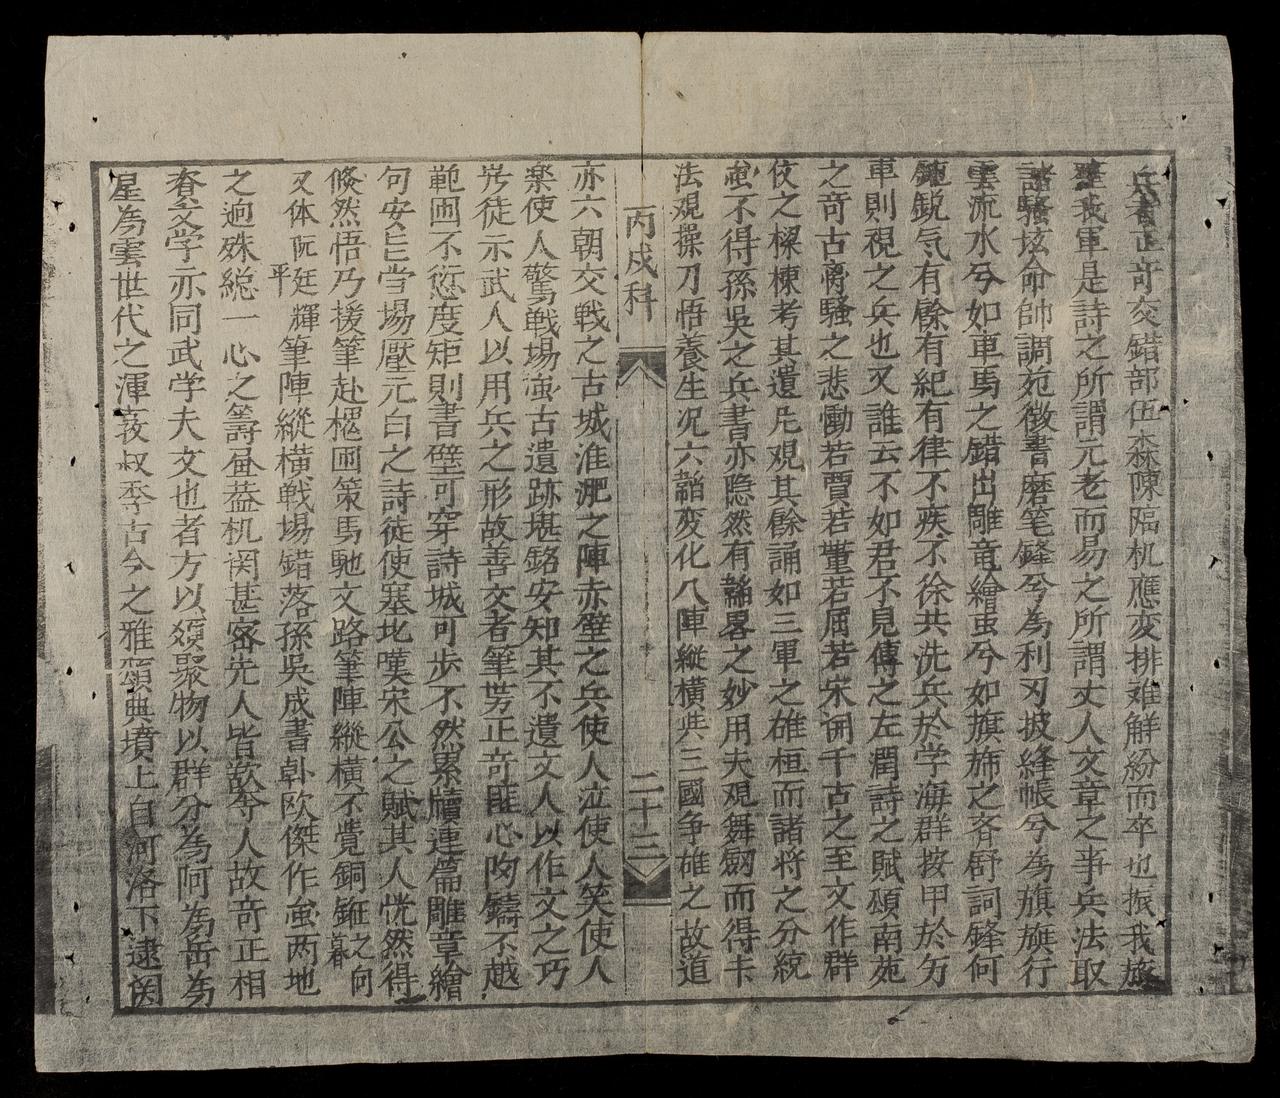 兵者正奇交錯部伍森陳隔机應変排难解紛而卒也振我旅
整我軍是詩之所謂元老而易之所謂丈人文章之事兵法取
諸騷坛命帥調苑徵書磨笔鋒兮為利刃披絳帳兮為旗旗行
雲流水兮如車馬之錯出雕竜繪虫兮如旗斾之斉舒詞鋒何
銃鋭気有餘有紀有律不疾不徐共洗兵於学海群按甲於匀
車則視之兵也又誰云不如君不見傳之左潤詩之賦碩南苑
之奇古騷之悲慟若賈若董若屈若宋開千古之至文作群
伎之樑棟考其遺凡观其餘誦如三軍之雄桓而諸将之分統
虽不得孫吳之兵書亦隐然有韜畧之妙用夫观舞劔而得卡
法观操刀悟養生况六韜変化八陣縱橫共三國争雄之故道
丙戍科
二十三
亦六朝交戦之古城淮淝之陣赤壁之兵使人泣使人笑使人
楽使人驚戦場虽古遺跡堪銘安知其不遺文人以作文之巧
岁徒示武人以用兵之形故善文者筆势正奇匪心陶鑄不越
範囲不愆度矩則書壁可穿詩城可步不然累牘連篇雕章繪
句安巨当場壓元白之詩徒使塞北嘆宋公之賦其人恍然得
倏然悟乃援筆赴囲策馬馳文路筆陣縱橫不覺銅鉦之向暮
又体阮廷輝平筆陣縱橫戦場錯落孫吳成書欧傑作虽两地
之逈殊総一心之籌昼葢机関甚宻先人皆欲夺人故奇正相
眷文学亦同武学夫文也者方以類聚物以群分為阿為岳為
星為雲世代之渾叔季古今之雅頌典墳上自河洛下逮関